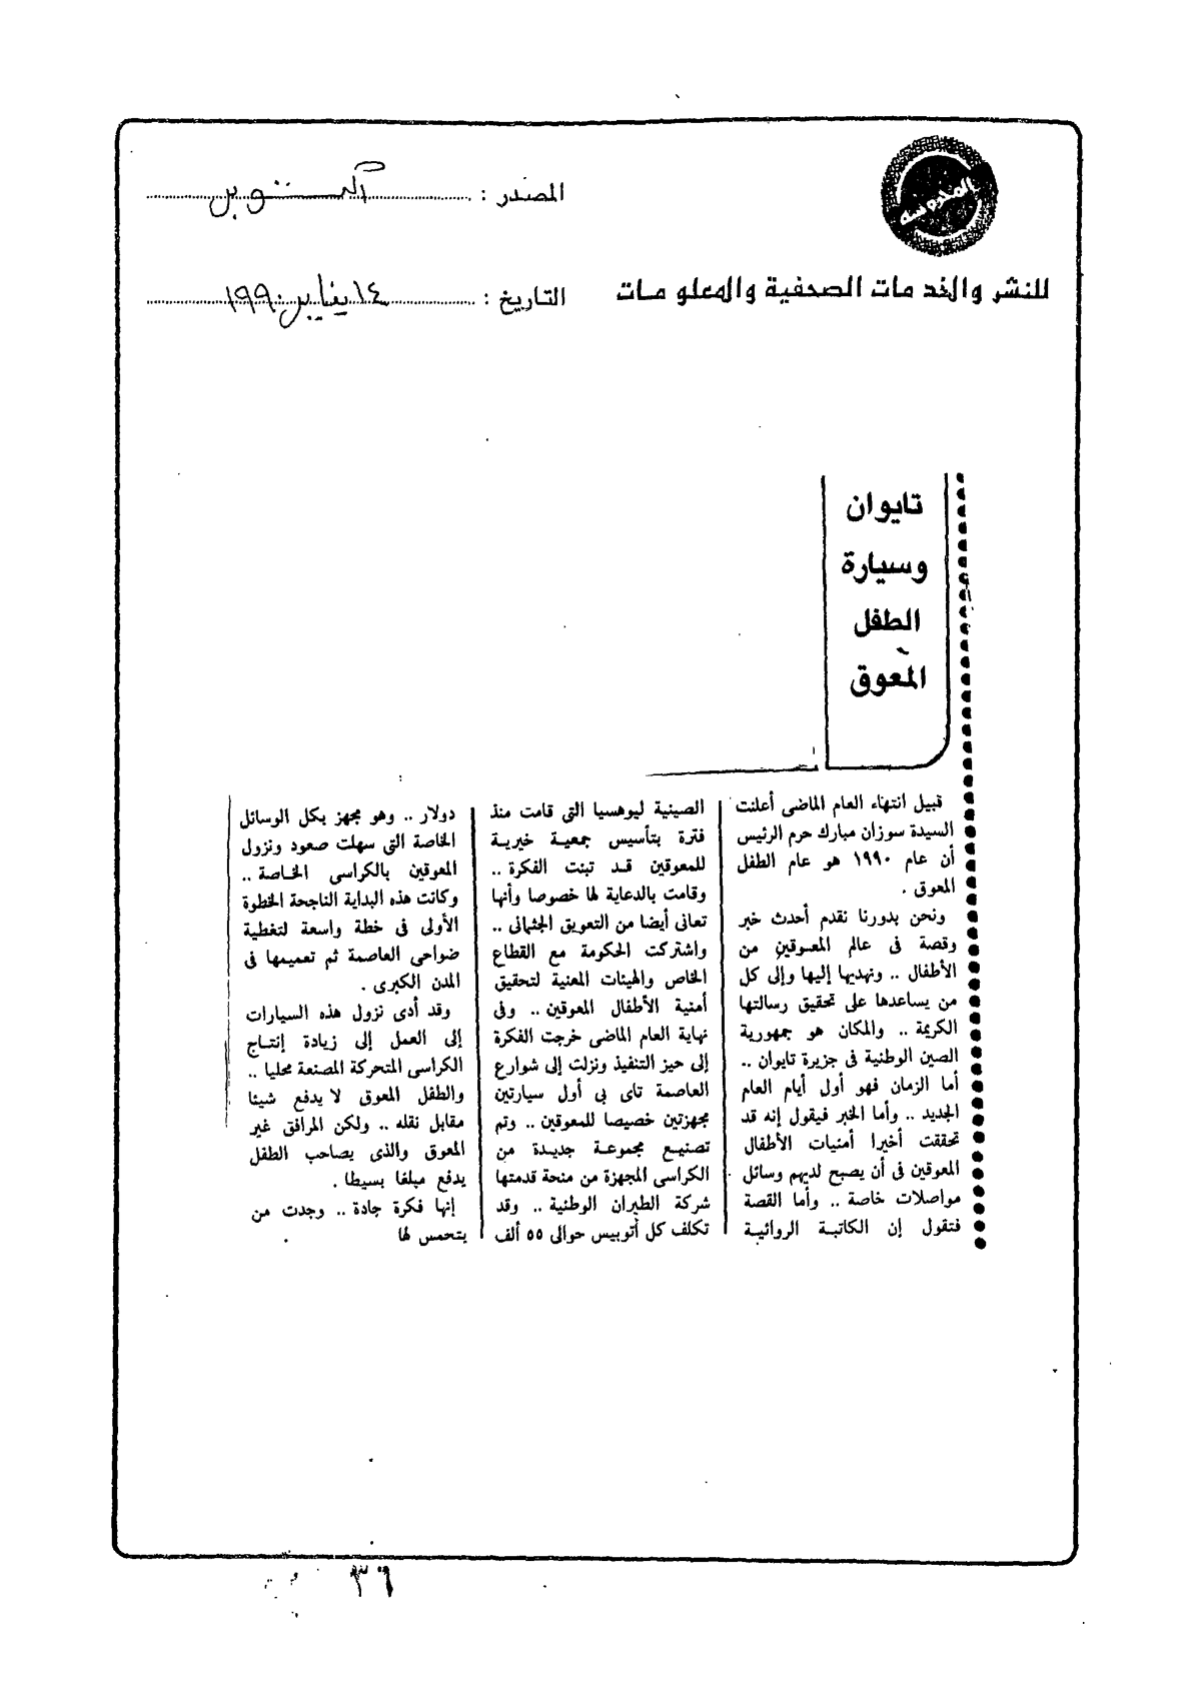 المصدر : أكتوبر
للنشر والخدمات الصحفية والمعلومات
التاريخ : ١٤ يناير ١٩٩٠
تايوان
وسيارة
الطفل
المعوق
قبيل انتهاء العام الماضى أعلنت
السيدة سوزان مبارك حرم الرئيس
أن عام ١٩٩٠ هو عام الطفل
المعوق .
ونحن بدورنا نقدم أحدث خبر
وقصة فى عالم المعوقين من
الأطفال .. ونهديها إليها وإلى كل
من يساعدها على تحقيق رسالتها
الكريمة .. والمكان هو جمهورية
الصين الوطنية فى جزيرة تايوان ..
أما الزمان فهو أول أيام العام
الجديد .. وأما الخبر فيقول إنه قد
تحققت أخيرا أمنيات الأطفال
المعوقين فى أن يصبح لديهم وسائل
مواصلات خاصة .. وأما القصة
فتقول إن الكاتبة الروائية
الصينية ليوهسيا التى قامت منذ
فترة بتأسيس جمعية خيرية
للمعوقين قد تبنت الفكرة ..
وقامت بالدعاية لها خصوصا وأنها
تعانى أيضا من التعويق الجثمانى ..
واشتركت الحكومة مع القطاع
الخاص والهيئات المعنية لتحقيق
أمنية الأطفال المعوقين .. وفى
نهاية العام الماضى خرجت الفكرة
إلى حيز التنفيذ ونزلت إلى شوارع
العاصمة تاى بى أول سيارتين
مجهزتين خصيصا للمعوقين .. وتم
تصنيع مجموعة جديدة من
الكراسى المجهزة من منحة قدمتها
شركة الطيران الوطنية .. وقد
تكلف كل أتوبيس حوالى ٥٥ ألف
دولار .. وهو مجهز بكل الوسائل
الخاصة التى سهلت صعود ونزول
المعوقين بالكراسى الخاصة ..
وكانت هذه البداية الناجحة الخطوة
الأولى فى خطة واسعة لتغطية
ضواحى العاصمة ثم تعميمها فى
المدن الكبرى .
وقد أدى نزول هذه السيارات
إلى العمل إلى زيادة إنتاج
الكراسى المتحركة المصنعة محليا ..
والطفل المعوق لا يدفع شيئا
مقابل نقله .. ولكن المرافق غير
المعوق والذى يصاحب الطفل
يدفع مبلغا بسيطا .
إنها فكرة جادة .. وجدت من
يتحمس لها
٣٦